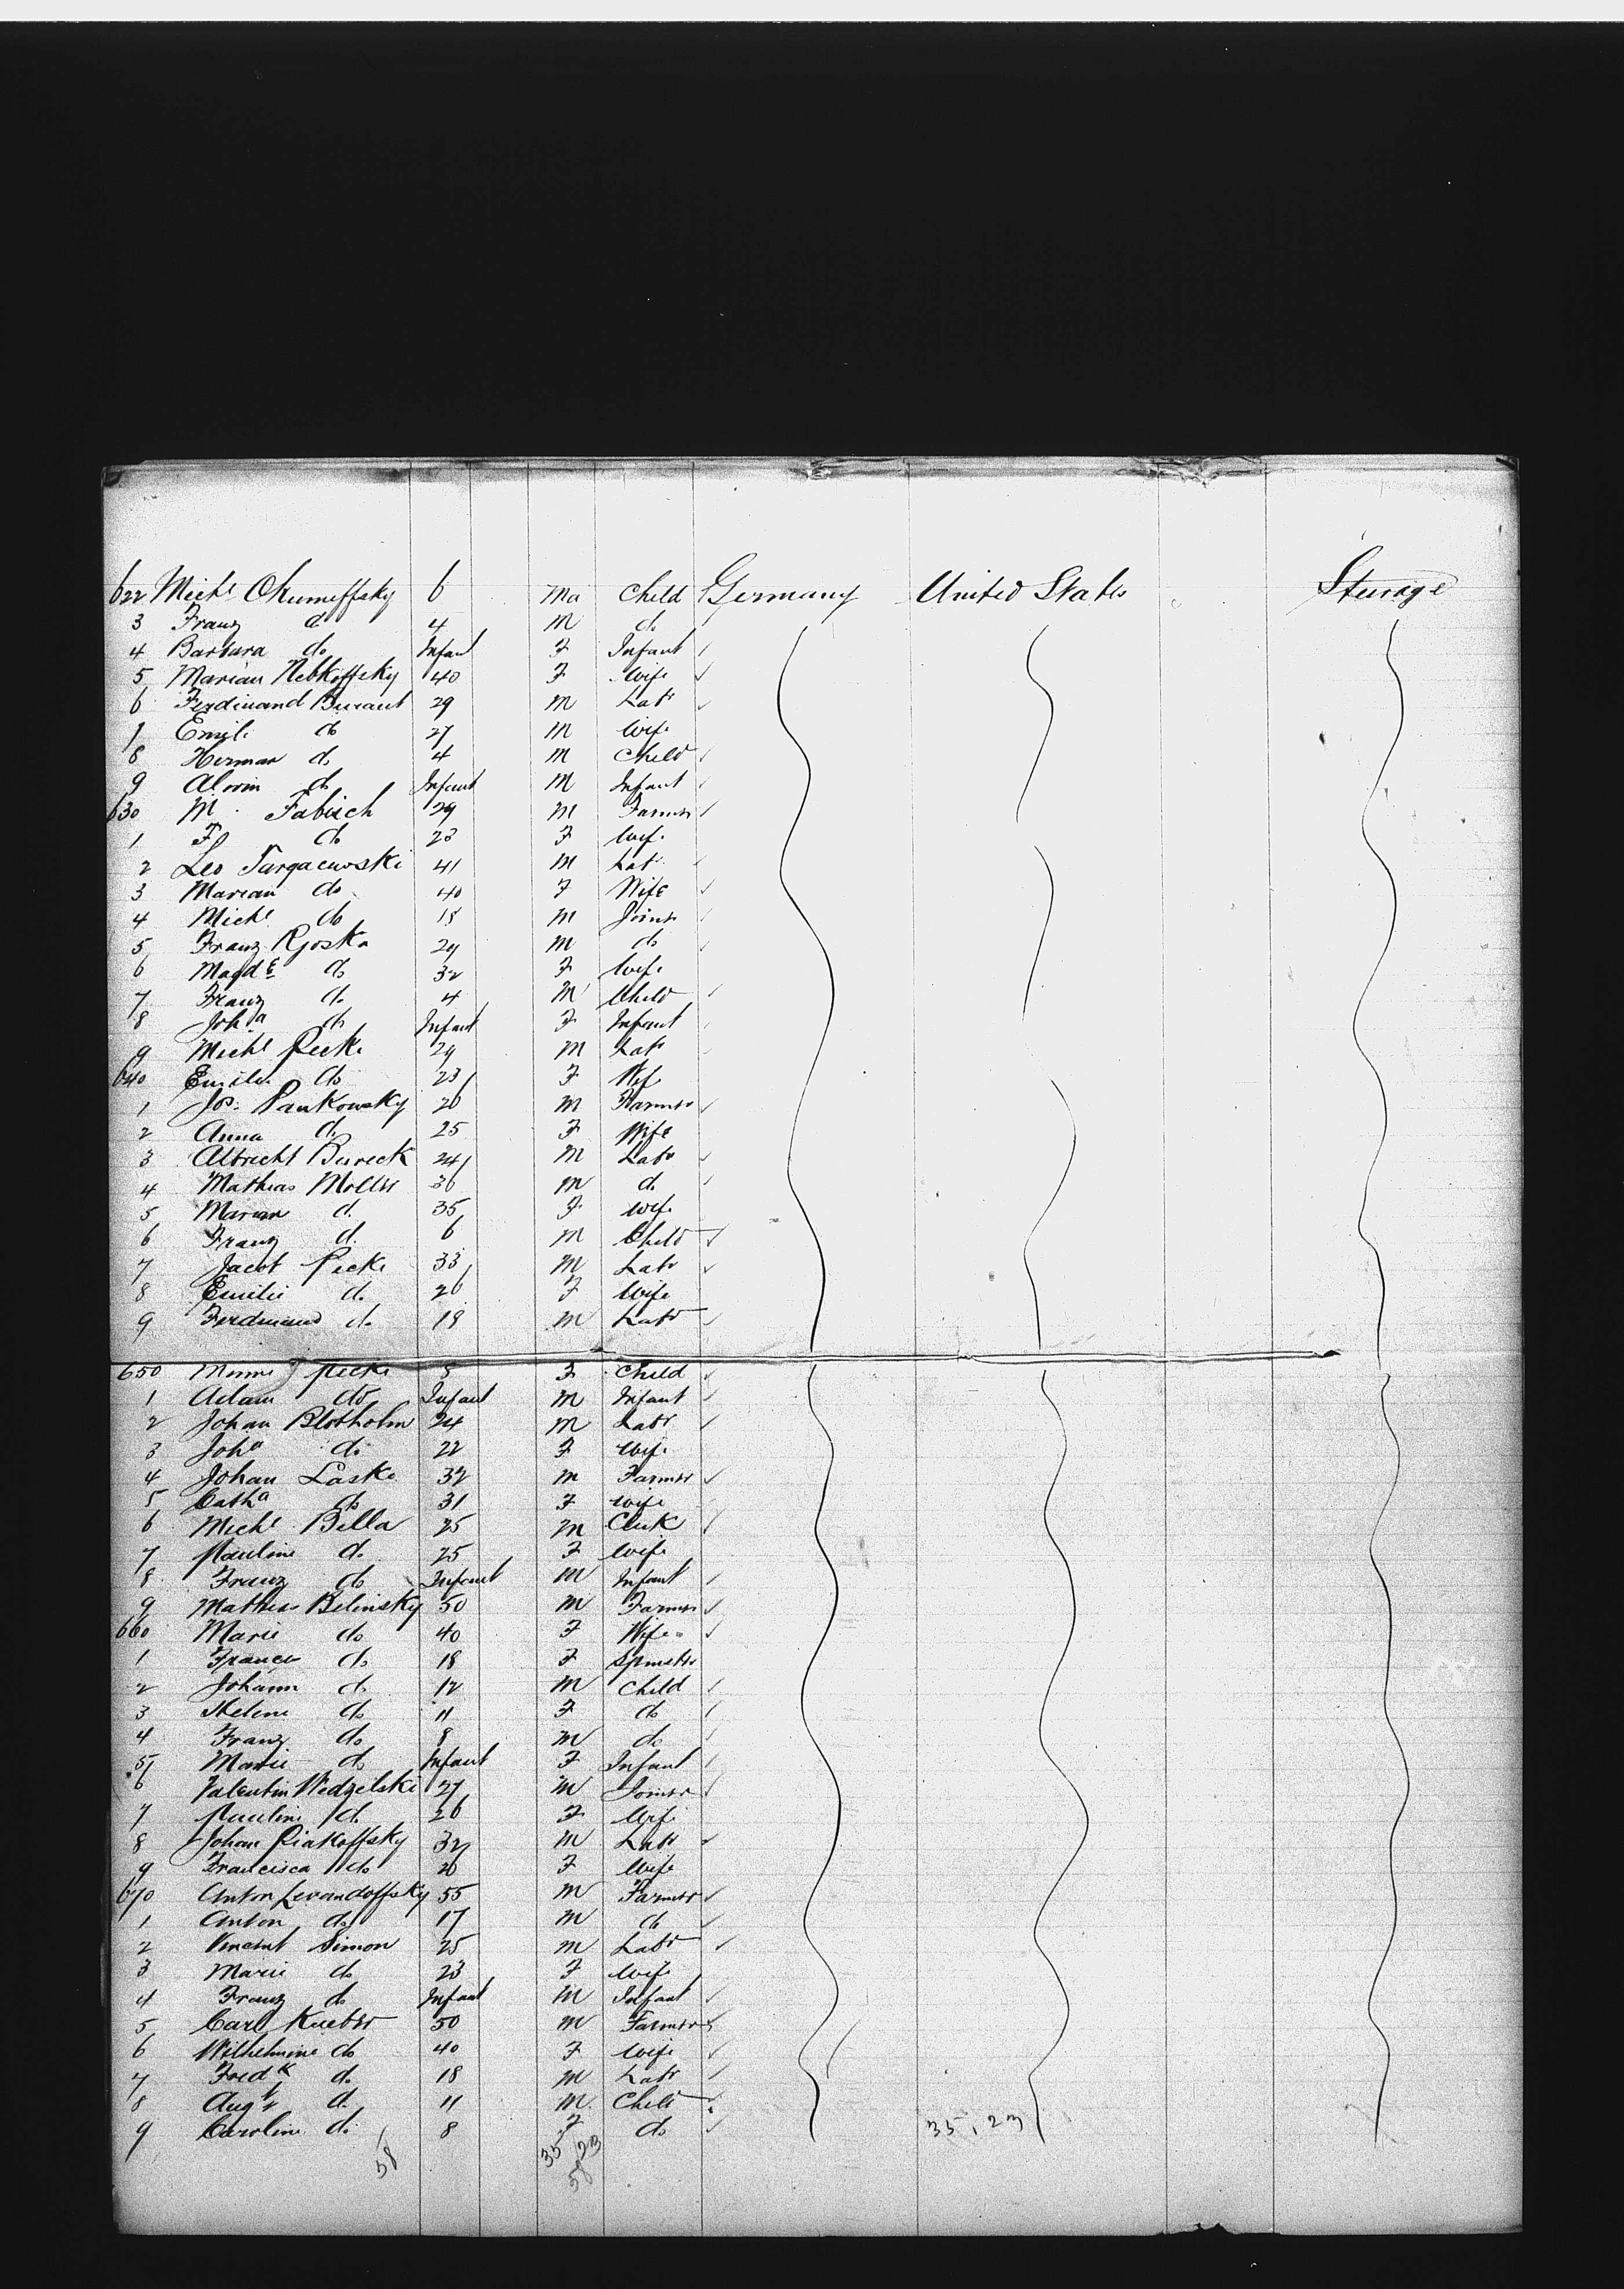 622 Michl Chumeffsky 6 Ma Child Germany United States Sturage
3 Franz do 4 M do
4 Barbara do Infant F Infant
5 Marian Nebkoffsky 40 F Wife
6 Ferdinand Burant 29 M Labr
7 Emili do 27 M Wife
8 Herman do 4 M Child
9 Alwin do Infant M Infant
630 M. Fabisch 29 M Farmer
1 F do 23 F Wife
2 Leo Targacewski 41 M Labr
3 Marian do 40 F Wife
4 Michl do 18 M Joiner
5 Franz Rjoska 29 M do
6 Magde do 32 F Wife
7 Franz do 4 M Child
8 Joha do Infant F Infant
9 Michl Pecke 29 M Labr
640 Emilie do 23 F Wife
1 Jos. Pankowsky 26 M Farmer
2 Anna do 25 F Wife
3 Albrecht Bureck 24 M Labr
4 Mathias Moller 36 M do
5 Marian do 35 F Wife
6 Franz do 6 M Child
7 Jacob Pecke 33 M Labr
8 Emilie do 26 F Wife
9 Ferdinand do 18 M Labr
650 Minni Pecke 8 F Child
1 Adam do Infant M Infant
2 Johan Blotholm 24 M Labr
3 Joha do 22 F Wife
4 Johan Laske 32 M Farmer
5 Catha do 31 F Wife
6 Michl Bella 25 M Clerk
7 Pauline do 25 F Wife
8 Franz do Infant M Infant
9 Mathias Belinsky 50 M Farmer
660 Marie do 40 F Wife
1 France do 18 F Spinster
2 Johann do 12 M Child
3 Helene do 11 F do
4 Franz do 8 M do
5 Marie do Infant F Infant
6 Valentin Wedzelski 27 M Joiner
7 Pauline do 26 F Wife
8 Johan Piakoffsky 32 M Labr
9 Francisca do 26 F Wife
670 Anton Levandoffsky 55 M Farmer
1 Anton do 17 M do
2 Vincent Simon 25 M Labr
3 Marie do 23 F Wife
4 Franz do Infant M Infant
5 Carl Kueber 50 M Farmer
6 Wilhelmine do 40 F Wife
7 Fredk do 18 M Labr
8 Augt do 11 M Child
9 Caroline do 8 F do 35,23
58 35 23
58